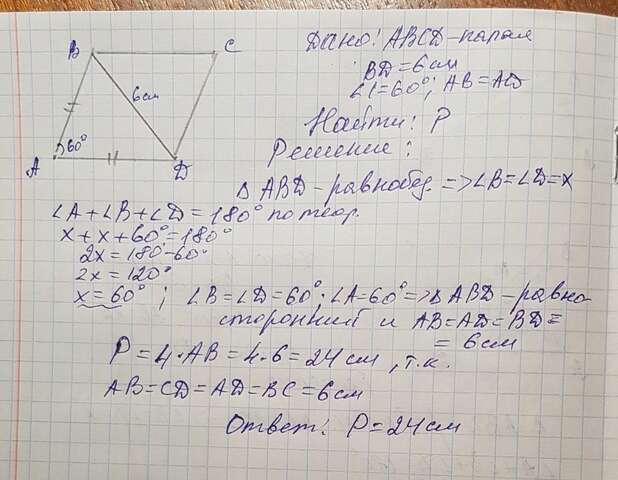 B C
6см
60°
A D
Дано: ABCD-парал
BD=6см
∠1=60°; AB=AD
Найти: P
Решение:
∆ ABD-равнобед. => ∠B=∠D=x
∠A+∠B+∠D=180° по теор.
x+x+60°=180°
2x=180-60°
2x=120°
x=60° ; ∠B=∠D=60°; ∠A=60° => ∆ ABD-равно-
сторонний и AB=AD=BD=
= 6см
P=4·AB=4·6=24см, т.к.
AB=CD=AD=BC=6см
Ответ: P=24см